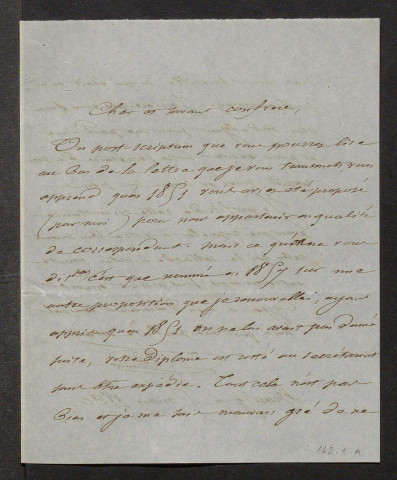 Cher et savant confrère,
Un post scriptum que vous pourrez lire
au bas de la lettre que je vous transmets vous
apprend qu'en 1851 vous aviez été proposé
(par moi) pour nous appartenir en qualité
de correspondant. mais ce que vous
c'est que nommé en 1857 sur une
autre proposition que je renouvellai, ayant
appris qu'en 1851 on n'avait pas donné
suite, votre diplôme est resté au secrétariat
sans être expédié. Tout cela n'est pas
bien et je me sais mauvais gré de ne
162.1.a